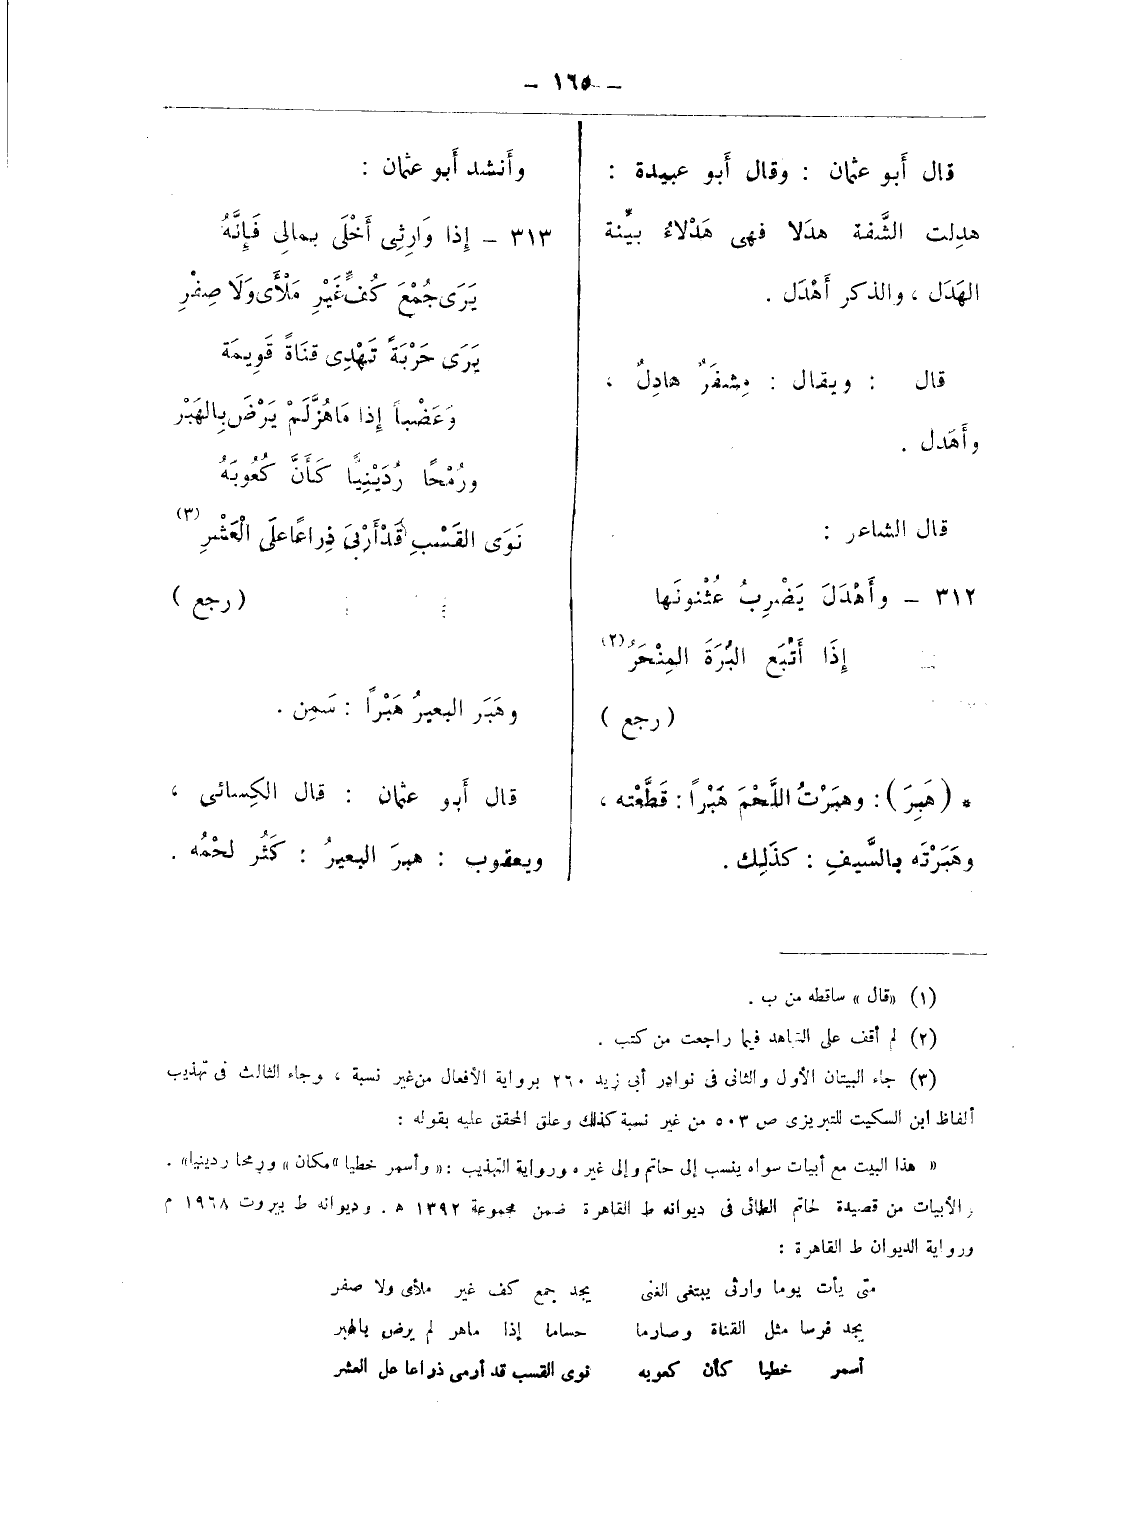 – ١٦٥ –
قال أَبو عثمان : وقال أَبو عبيدة :
هدِلت الشَّفة هدَلا فهى هَدْلاءُ بيِّنة
الهَدَل ، والذكر أَهْدَل .
قال : ويقال : مِشفَرٌ هادِلٌ ،
وأَهَدل .
قال الشاعر :
٣١٢ – وأَهْدَلَ يَضْرِبُ عُثْنونَها
إِذَا أَتْبَع البُرَةَ المِنْحَرُ (٢)
( رجع )
* ( هَبِرَ ) : وهبَرْتُ اللَّحْمَ هَبْراً : قَطَّعْته ،
وهَبَرْتَه بالسَّيفِ : كذَلِك .
وأَنشد أَبو عثمان :
٣١٣ – إِذا وَارِثِى أَخْلَى بمالِى فَإِنَّهُ
يَرَى جُمْعَ كُفٍّ غَيْرِ مَلْأَى وَلَا صِفْرِ
يَرَى حَرْبَةً تَهْدِى قنَاةً قَوِيمَة
وَعَضْباً إِذا مَا هُزَّ لَمْ يَرْضَ بِالهَبْر
ورُمْحًا رُدَيْنِيًّا كَأَنَّ كُعُوبَهُ
نَوَى القَسْبِ قَدْ أَرْبَى ذِراعًا عَلَى الْعَشْرِ (٣)
( رجع )
وهَبَر البعيرُ هَبْراً : سَمِن .
قال أَبو عثمان : قال الكِسائى ،
ويعقوب : هبرَ البعيرُ : كَثُر لحْمُه .
(١) «قال» ساقطه من ب .
(٢) لم أقف على الشاهد فيما راجعت من كتب .
(٣) جاء البيتان الأول والثانى فى نوادر أبى زيد ٢٦٠ برواية الأفعال من غير نسبة ، وجاء الثالث فى تهذيب
ألفاظ ابن السكيت للتبريزى ص ٥٠٣ من غير نسبة كذلك وعلق المحقق عليه بقوله :
« هذا البيت مع أبيات سواه ينسب إلى حاتم وإلى غيره ورواية التهذيب : « وأسمر خطيا » مكان « ورمحا ردينيا» .
والأبيات من قصيدة لحاتم الطائى فى ديوانه ط القاهرة ضمن مجموعة ١٣٩٢ ه . وديوانه ط بيروت ١٩٦٨ م
ورواية الديوان ط القاهرة :
متى يأت يوما وارثى يبتغى الغنى يجد جمع كف غير ملأى ولا صفر
يجد فرسا مثل القناة وصارما حساما إذا ماهر لم يرض بالهبر
أسمر خطيا كأن كعوبه نوى القسب قد أرمى ذراعا على العشر